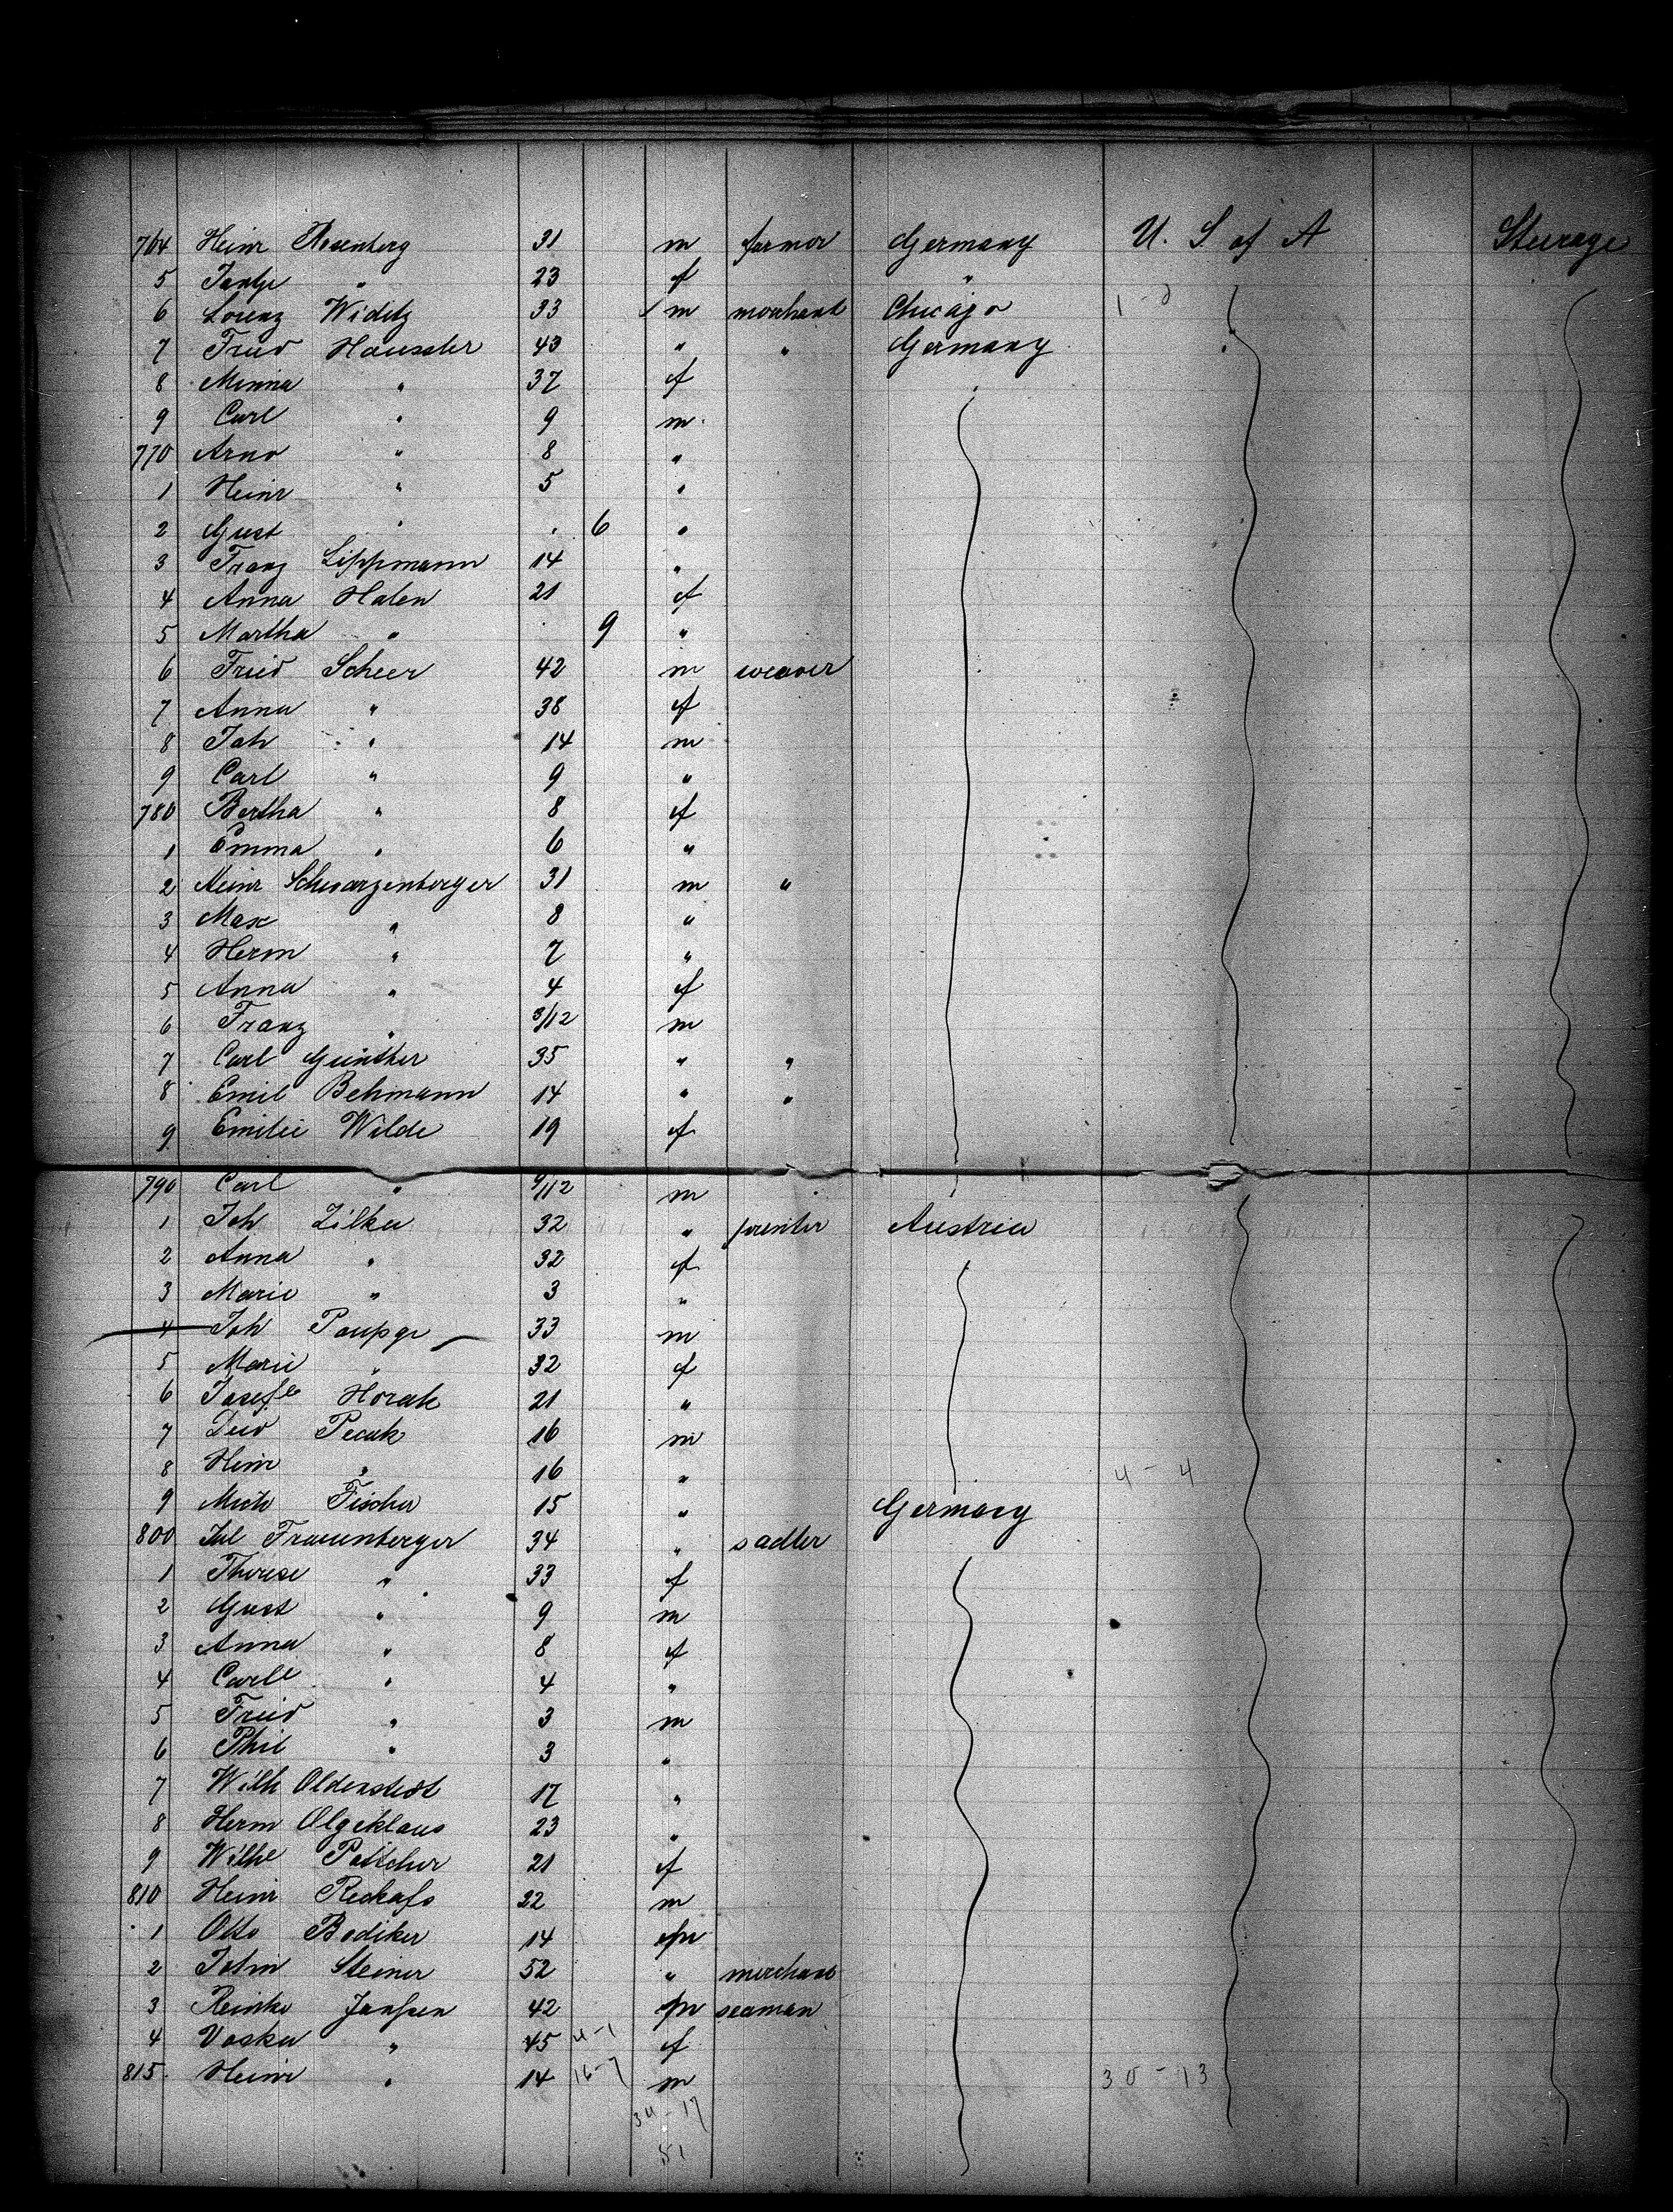 764 Heinr Rosenberg 31 m farmer Germany U. S of A Steerage
5 Jantje " 23 f "
6 Lorenz Widitz 33 m merchant Chicago 1 - 0
7 Fried Haussler 43 " " Germany
8 Minna " 37 f
9 Carl " 9 m
770 Arno " 8 "
1 Heinr " 5 "
2 Gust " . 6 "
3 Franz Lippmann 14 "
4 Anna Halen 21 f
5 Martha " . 9 "
6 Fried Scheer 42 m weaver
7 Anna " 38 f
8 Joh " 14 m
9 Carl " 9 "
780 Bertha " 8 f
1 Emma " 6 "
2 Heinr Schwarzenberger 31 m "
3 Max " 8 "
4 Herm " 7 "
5 Anna " 4 f
6 Franz " 3/12 m
7 Carl Günther 35 " "
8 Emil Behmann 14 " "
9 Emilie Wilde 19 f
790 Carl " 9/12 m
1 Joh Zilka 32 " printer Austria
2 Anna " 32 f
3 Marie " 3 "
4 Joh 33 m
5 Marie " 32 f
6 Josefe Horak 21 "
7 Pecak 16 m
8 Heinr " 16 " 4 - 4
9 Mich Fischer 15 " Germany
800 Jul Frauenberger 34 " sadler
1 Therese " 33 f
2 Gust " 9 m
3 Anna " 8 f
4 Carle " 4 "
5 Fried " 3 m
6 Phil " 3 "
7 Wilh Oldenstedt 17 "
8 Herm Olgeklaus 23 "
9 Wilhe 21 f
810 Heinr 22 m
1 Otto Bodiker 14 m
2 John Steiner 52 " merchant
3 Reinke Janssen 42 m seaman
4 " 45 4-1 f
815 Heinr " 14 16-7 m 30 - 13
34 - 17
51